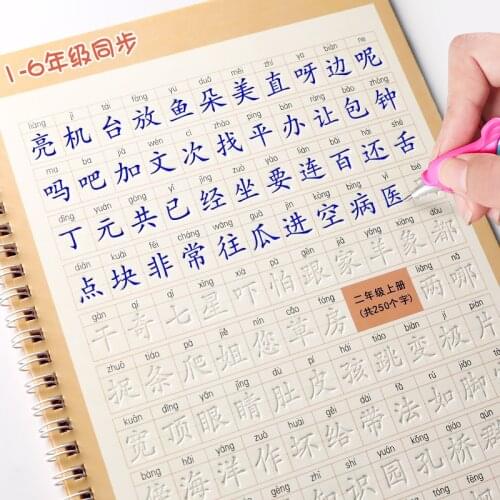 1-6年级同步
liàng jī tái fàng yú duǒ měi zhí ya biān ne
亮机台放鱼朵美直呀边呢
ma ba jiā wén cì zhǎo píng bàn ràng bāo zhōng
吗吧加文次找平办让包钟
dīng yuán gòng yǐ jīng zuò yào lián bǎi hái shé
丁元共已经坐要连百还舌
diǎn kuài fēi cháng wǎng guā jìn kōng bìng yī
点块非常往瓜进空病医
gàn qí qī xīng xià pà
干奇七星吓怕跟家羊象都
二年级上册
(共250个字)
zhuō tiáo pá jiě nín fáng liǎng nǎ
捉条爬姐您房两哪
kuān dǐng yǎn jīng dù pí hái tiào biàn jí piàn
宽顶眼睛肚皮孩跳变极片
海洋作坏给带法如脚